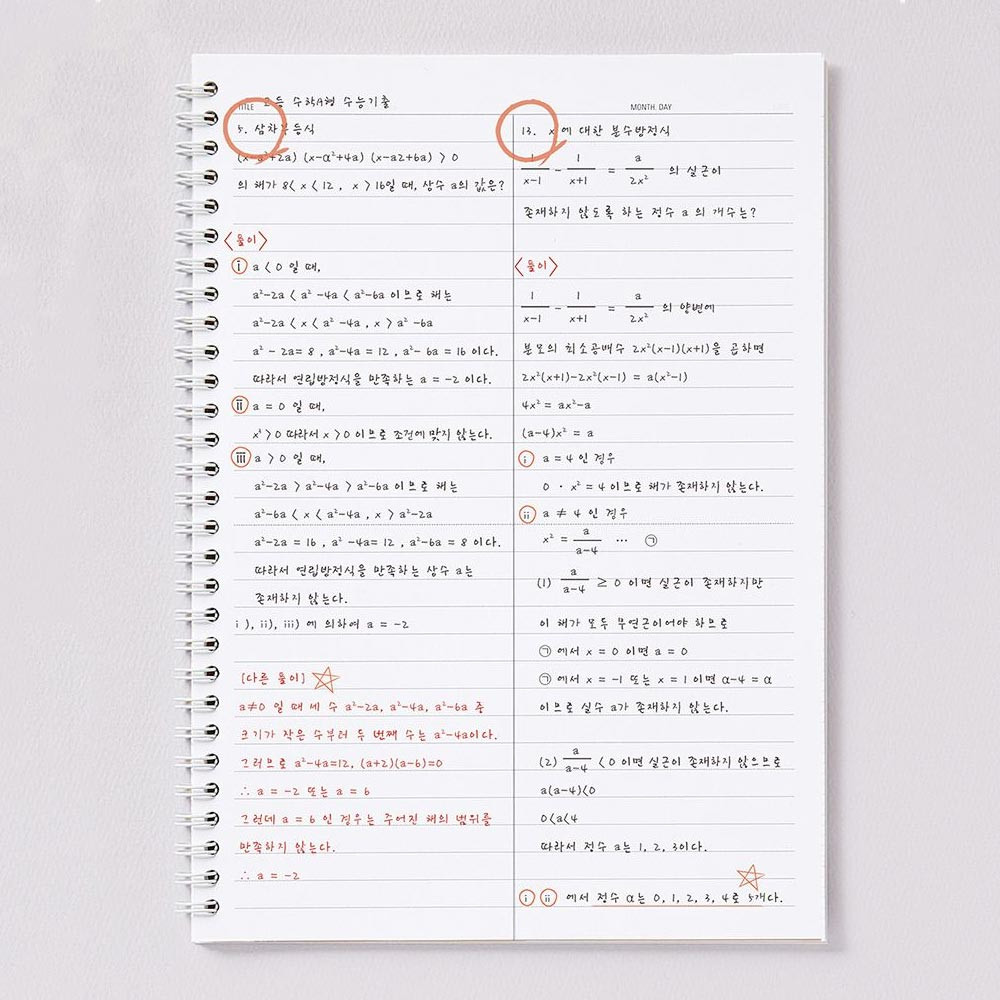 TITLE 고등 수학A형 수능기출
MONTH. DAY
5. 삼차부등식
(x-a²+2a) (x-α²+4a) (x-a2+6a) > 0
의 해가 8< x < 12 , x > 16일 때, 상수 a의 값은?
<풀이>
ⅰ a < 0 일 때,
a²-2a < a² -4a < a²-6a 이므로 해는
a²-2a < x < a² -4a , x > a² -6a
a² - 2a= 8 , a²-4a = 12 , a²- 6a = 16 이다.
따라서 연립방정식을 만족하는 a = -2 이다.
ⅱ a = 0 일 때,
x³ > 0 따라서 x > 0 이므로 조건에 맞지 않는다.
ⅲ a > 0 일 때,
a²-2a > a²-4a > a²-6a 이므로 해는
a²-6a < x < a²-4a , x > a²-2a
a²-2a = 16 , a² -4a= 12 , a²-6a = 8 이다.
따라서 연립방정식을 만족하는 상수 a는
존재하지 않는다.
i ), ii), iii) 에 의하여 a = -2
[다른 풀이]
a≠0 일 때 세 수 a²-2a, a²-4a, a²-6a 중
크기가 작은 수부터 두 번째 수는 a²-4a이다.
그러므로 a²-4a=12, (a+2)(a-6)=0
∴ a = -2 또는 a = 6
그런데 a = 6 인 경우는 주어진 해의 범위를
만족하지 않는다.
∴ a = -2
13. x 에 대한 분수방정식
1/(x-1) - 1/(x+1) = a/(2x²) 의 실근이
존재하지 않도록 하는 정수 a 의 개수는?
<풀이>
1/(x-1) - 1/(x+1) = a/(2x²) 의 양변에
분모의 최소공배수 2x²(x-1)(x+1)을 곱하면
2x²(x+1)-2x²(x-1) = a(x²-1)
4x² = ax²-a
(a-4)x² = a
ⅰ a = 4 인 경우
0 · x² = 4 이므로 해가 존재하지 않는다.
ⅱ a ≠ 4 인 경우
x² = a/(a-4) … ㉠
(1) a/(a-4) ≥ 0 이면 실근이 존재하지만
이 해가 모두 무연근이어야 하므로
㉠ 에서 x = 0 이면 a = 0
㉠ 에서 x = -1 또는 x = 1 이면 α-4 = α
이므로 실수 a가 존재하지 않는다.
(2) a/(a-4) < 0 이면 실근이 존재하지 않으므로
a(a-4)<0
0<a<4
따라서 정수 a는 1, 2, 3이다.
ⅰ ⅱ 에서 정수 α는 0, 1, 2, 3, 4로 5개다.